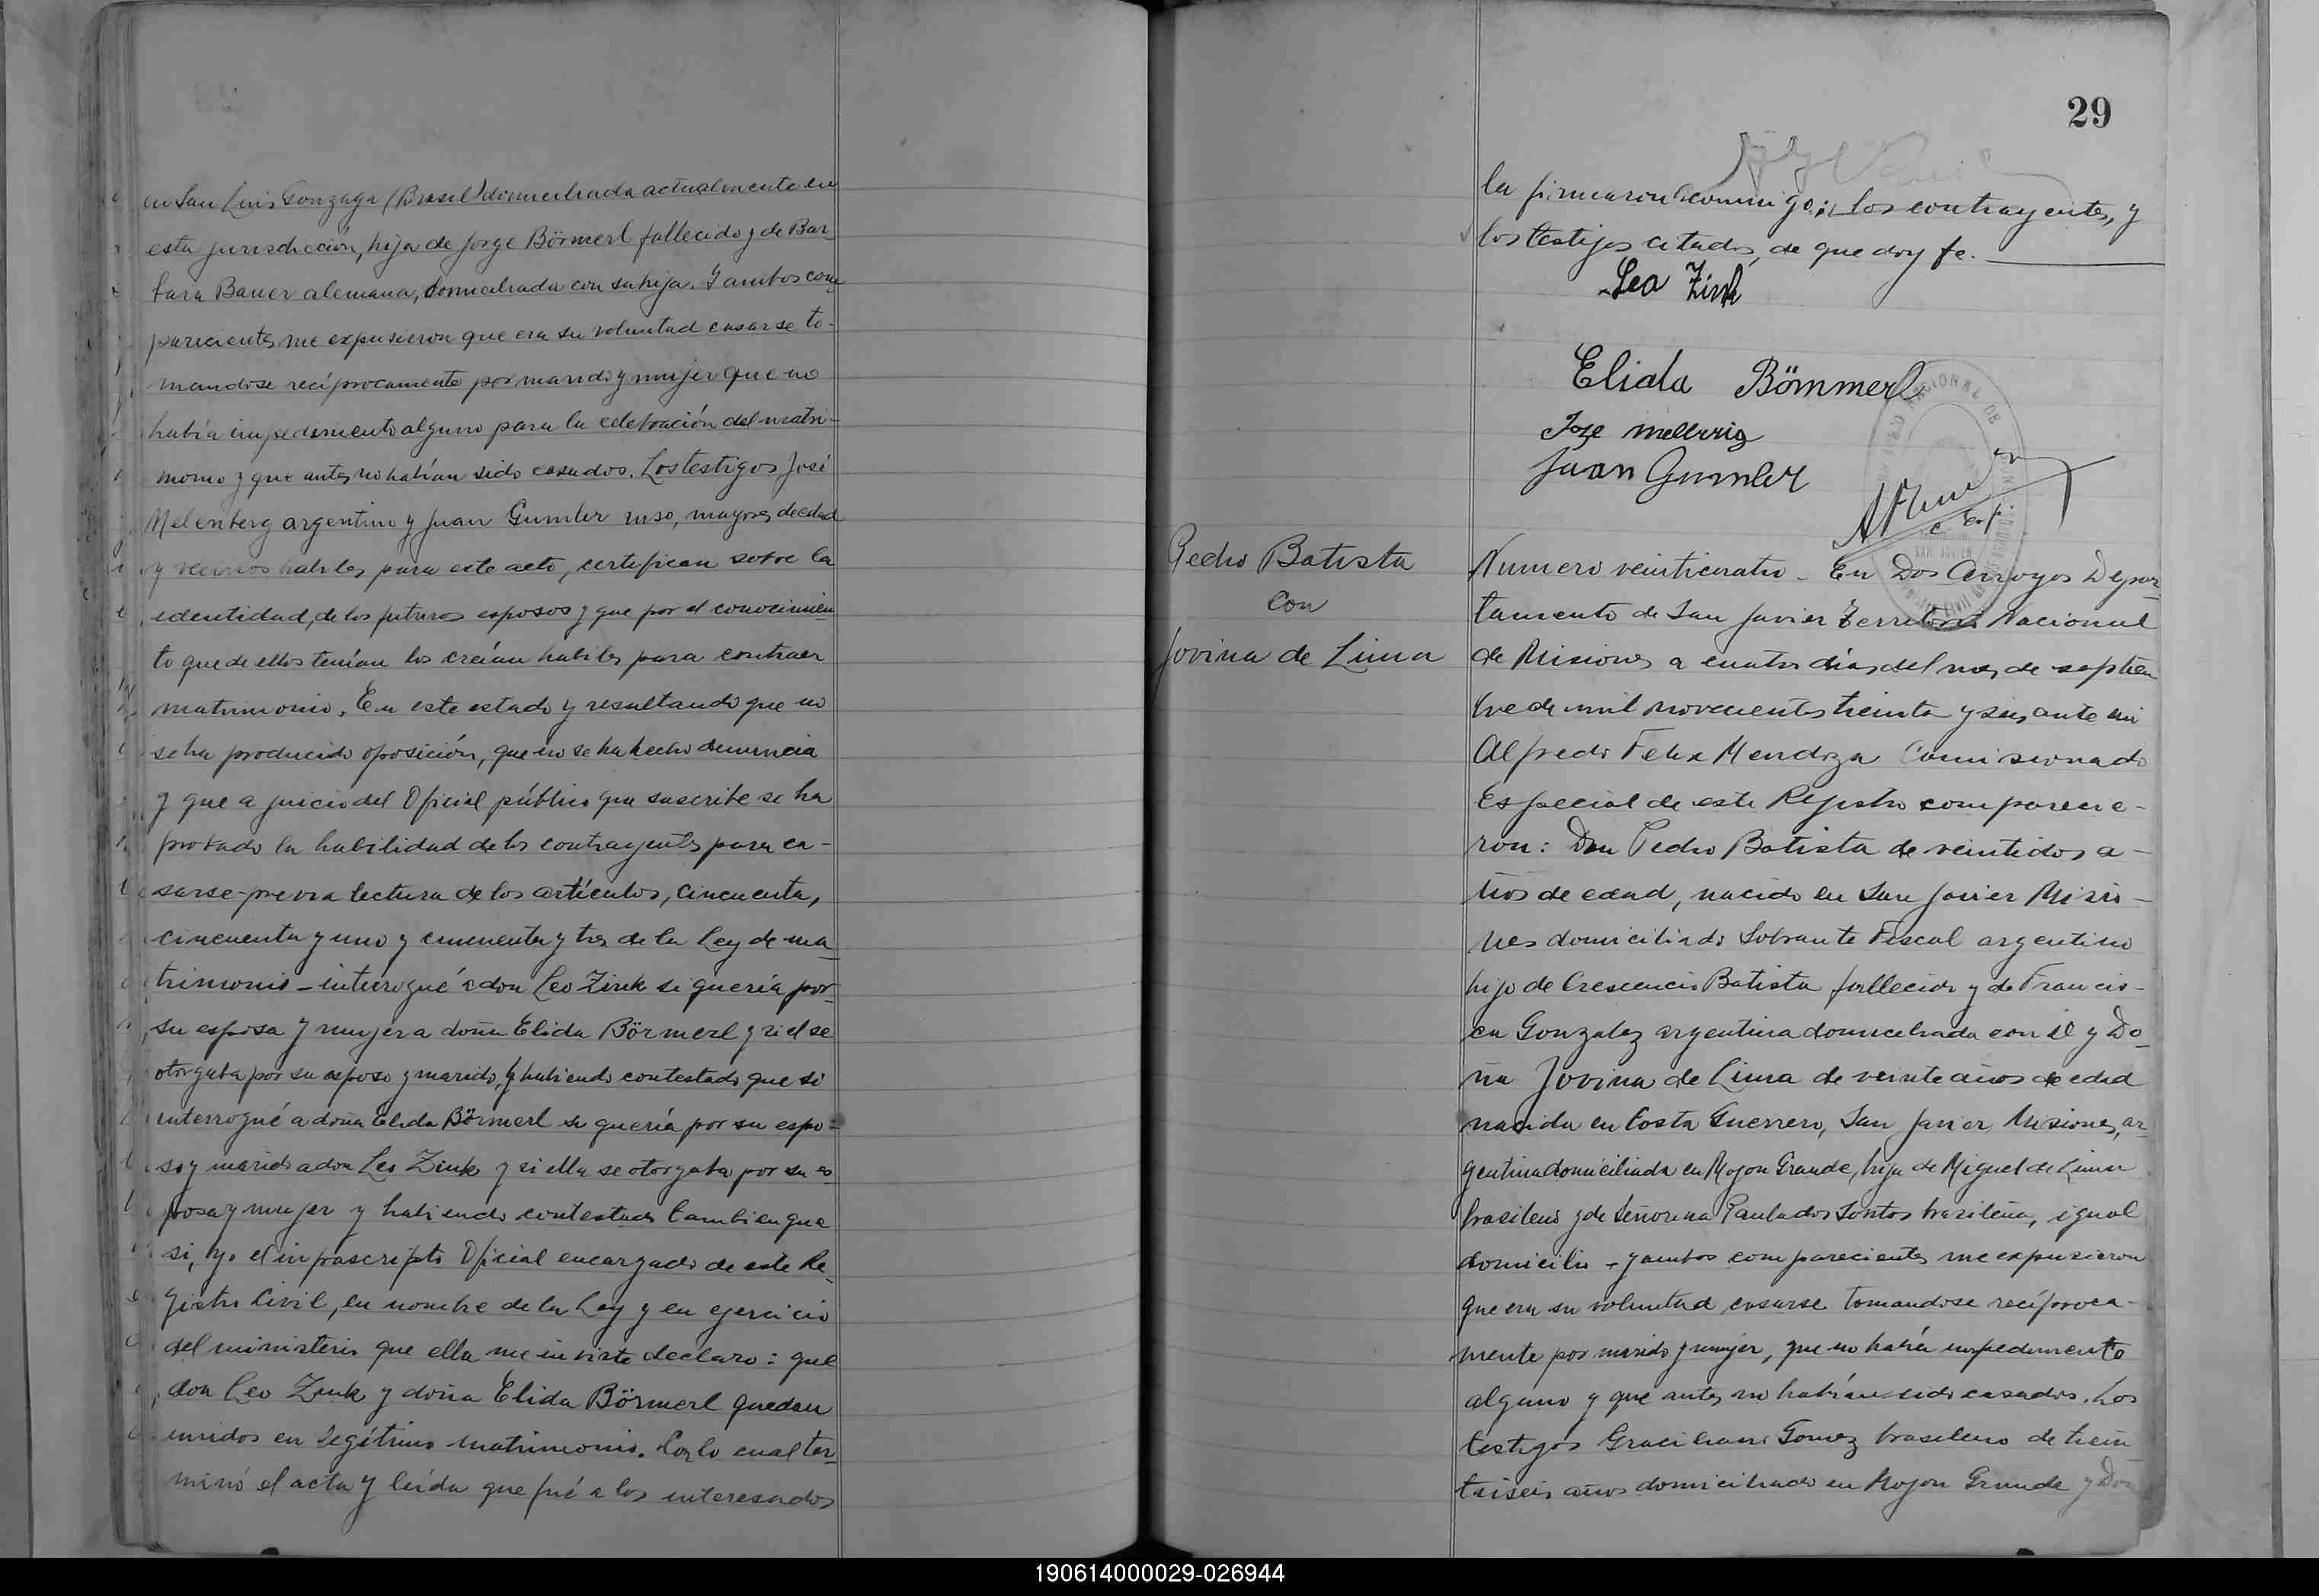 en San Luis Gonzaga (Brasil) domiciliada actualmente en
esta jurisdicción, hija de Jorge Börmerl fallecido y de Bar-
bara Bauer alemana, domiciliada con su hija. Y ambos com
parecientes me expusieron que era su voluntad casarse to-
mandose recíprocamente por marido y mujer que no
había impedimento alguno para la celebración del matri-
monio y que antes no habían sido casados. Los testigos José
Melenberg argentino y Juan Gumler ruso, mayores de edad
y vecinos habiles para este acto, certifican sobre la
identidad, de los futuros esposos y que por el conocimien
to que de ellos tenían los creían habiles para contraer
matrimonio. En este estado y resultando que no
se ha producido oposición, que no se ha hecho denuncia
y que a juicio del Oficial público que suscribe se ha
probado la habilidad de los contrayentes para ca-
sarse - previa lectura de los artículos, cincuenta,
cincuenta y uno y cincuenta y tres de la Ley de ma
trimonio - interrogué a don Leo Zink si quería por
su esposa y mujer a doña Elida Börmerl y si el se
otorgaba por su esposo y marido, y habiendo contestado que si
interrogué a doña Elida Börmerl si quería por su espo-
so y marido a don Leo Zink y si ella se otorgaba por su es
posa y mujer y habiendo contestado tambien que
si, yo el infrascripto Oficial encargado de este Re-
gistro Civil, en nombre de la Ley y en ejercicio
del ministerio que ella me inviste declaro: que
don Leo Zink y doña Elida Börmerl quedan
unidos en legítimo matrimonio. Con lo cual ter-
minó el acta y leída que fué a los interesados
29
la firmaron conmigo; los contrayentes, y
los testigos citados, de que doy fe.
Leo Zink
Elida Bömmerl
Jose mellverig
Juan Gumler
Pedro Batista
con
Jovina de Lima
Numero veinticuatro - En Dos Arroyos Depar
tamento de San Javier Territorio Nacional
de Misiones a cuatro días del mes de septiem
bre de mil novecientos treinta y seis, ante mi
Alfredo Felix Mendoza Comisionado
Especial de este Registro comparecie-
ron: Don Pedro Batista de veintidos a-
ños de edad, nacido en San Javier Misio-
nes domiciliado Sobrante Fiscal argentino
hijo de Crescencio Batista fallecido y de Francis-
ca Gonzalez argentina domiciliada con el y Do-
ña Jovina de Lima de veinte años de edad
nacida en Costa Guerrero, San Javier, Misiones, ar-
gentina domiciliada en Mojon Grande, hija de Miguel de Lima
brasilero y de Señorina Paula dos Santos brasileña, igual
domicilio - y ambos comparecientes me expusieron
que era su voluntad casarse tomandose recíproca-
mente por marido y mujer, que no había impedimento
alguno y que antes no habían sido casados. Los
testigos Graciliano Gomez brasilero de trein
taiseis años domiciliado en Mojon Grande y Don
190614000029-026944